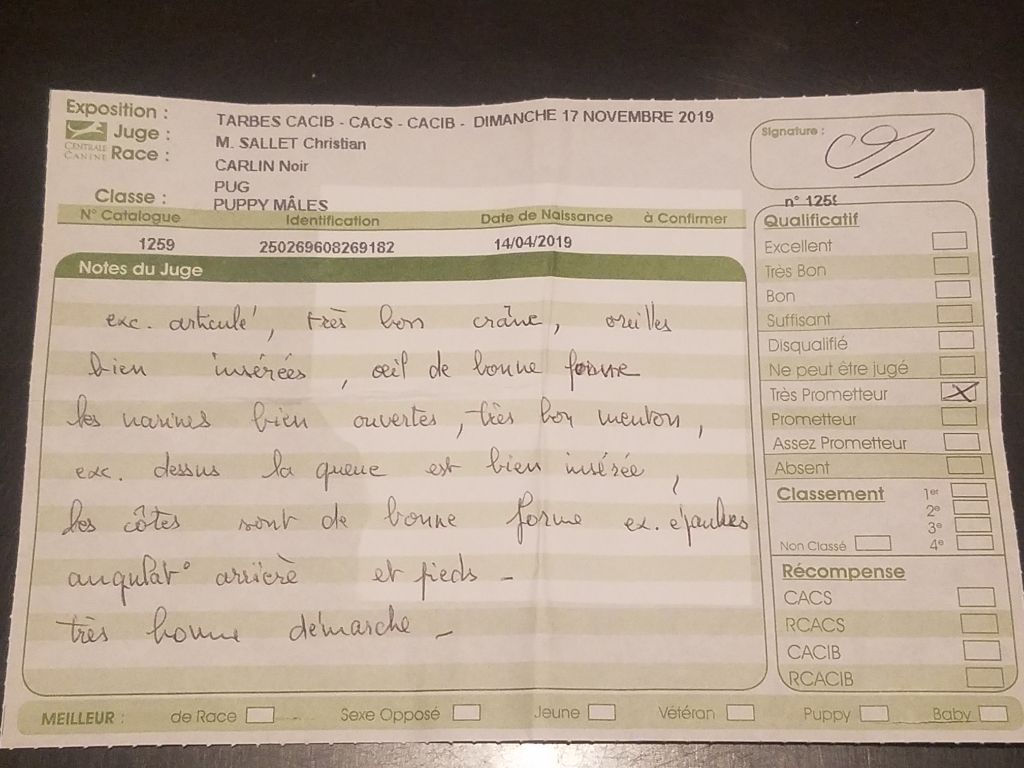 Exposition : TARBES CACIB - CACS - CACIB - DIMANCHE 17 NOVEMBRE 2019
CENTRALE CANINE
Juge : M. SALLET Christian
Race : CARLIN Noir
PUG
Classe : PUPPY MÂLES
Signature :
N° Catalogue Identification Date de Naissance à Confirmer
1259 250269608269182 14/04/2019
Notes du Juge
exc. articulé, très bon crâne, oreilles
bien insérées, œil de bonne forme
les narines bien ouvertes, très bon menton,
exc. dessus la queue est bien insérée,
les côtes sont de bonne forme ex. épaules
angulat° arrière et pieds -
très bonne démarche -
n° 1259
Qualificatif
Excellent
Très Bon
Bon
Suffisant
Disqualifié
Ne peut être jugé
Très Prometteur X
Prometteur
Assez Prometteur
Absent
Classement 1er
2e
3e
Non Classé 4e
Récompense
CACS
RCACS
CACIB
RCACIB
MEILLEUR : de Race Sexe Opposé Jeune Vétéran Puppy Baby